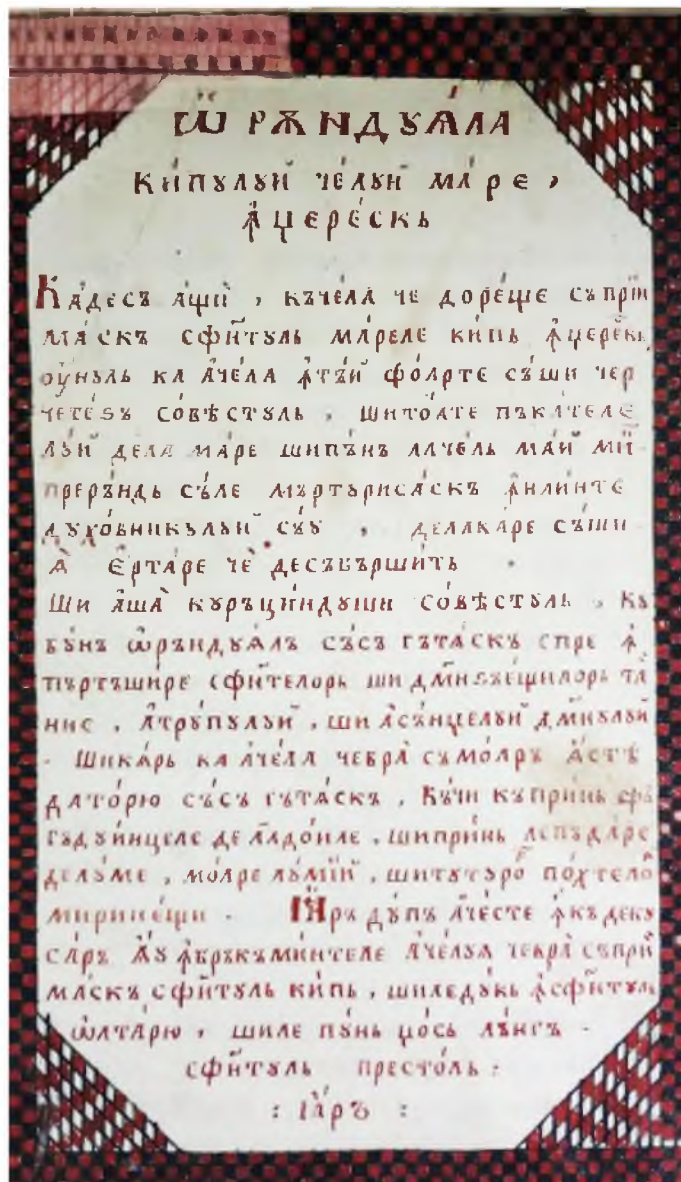 Ѿ РѪНДУѦЛА
КИ́ПУЛУЙ ЧЕ́ЛУЙ МА́РЕ,
Ꙟ҆ЦЕРЕ́СКЬ
Ка́десъ а҆ши̇̀, къче́ла че доре́ще съпрїи
ма́скъ сфн҃туль ма́реле кипь ꙟ҆цере́скь,
оу҆нуль ка аче́ла ꙟ҆тъй фоа́рте съши чер
чете́ꙁъ со́вѣстуль, шитоа́те пъка́теле
лу́й дела ма́ре шипъ́нъ лаче́ль ма́й ми̇̀
преръ́ндь съле мъртѹриса́скъ ꙟ҆наи́нте
духо́вникулуй съу, делака́ре съши
а҆̀ є҆рта́ре че десъвършить
Ши а҆ша̀ куръци́ндуши со́вѣстуль, Къ
бу́нъ ѡ҆ръндуа́лъ съсъ гъта́скъ спре ꙟ҆
пъртъшире сфн҃телорь ши дмн҃ꙁъещилорь та́
ине, ꙟ҆тру́пулуй, ши ꙟ҆съ́нцелуй дмн҃улуй
· Шика́рь ка аче́ла чевра̀ съмоа́ръ а҆́стѣ
дато́рю съсъ гъта́скъ, Къчи къпри́нь фъ
гъдуи́нцеле де ладо́иле, шипри́нь лепъда́ре
делу́ме, мо́аре лу́мїй, шитутуро́ по́хтело́
мирине́щи · Іа҆ръ ду́пъ аче́сте ꙟ҆къ деку
са́ръ а҆у ꙟ҆бръкъми́нтеле аче́луꙗ чевра̀ съпрїи
ма́скъ сфн҃туль кипь, шиледу́кь ꙟ҆сфн҃туль
ѡ҆лта́рю, шиле пу́нь цо́сь лъ́нгъ ·
сфн҃туль престо́ль:
: Іа́ръ :